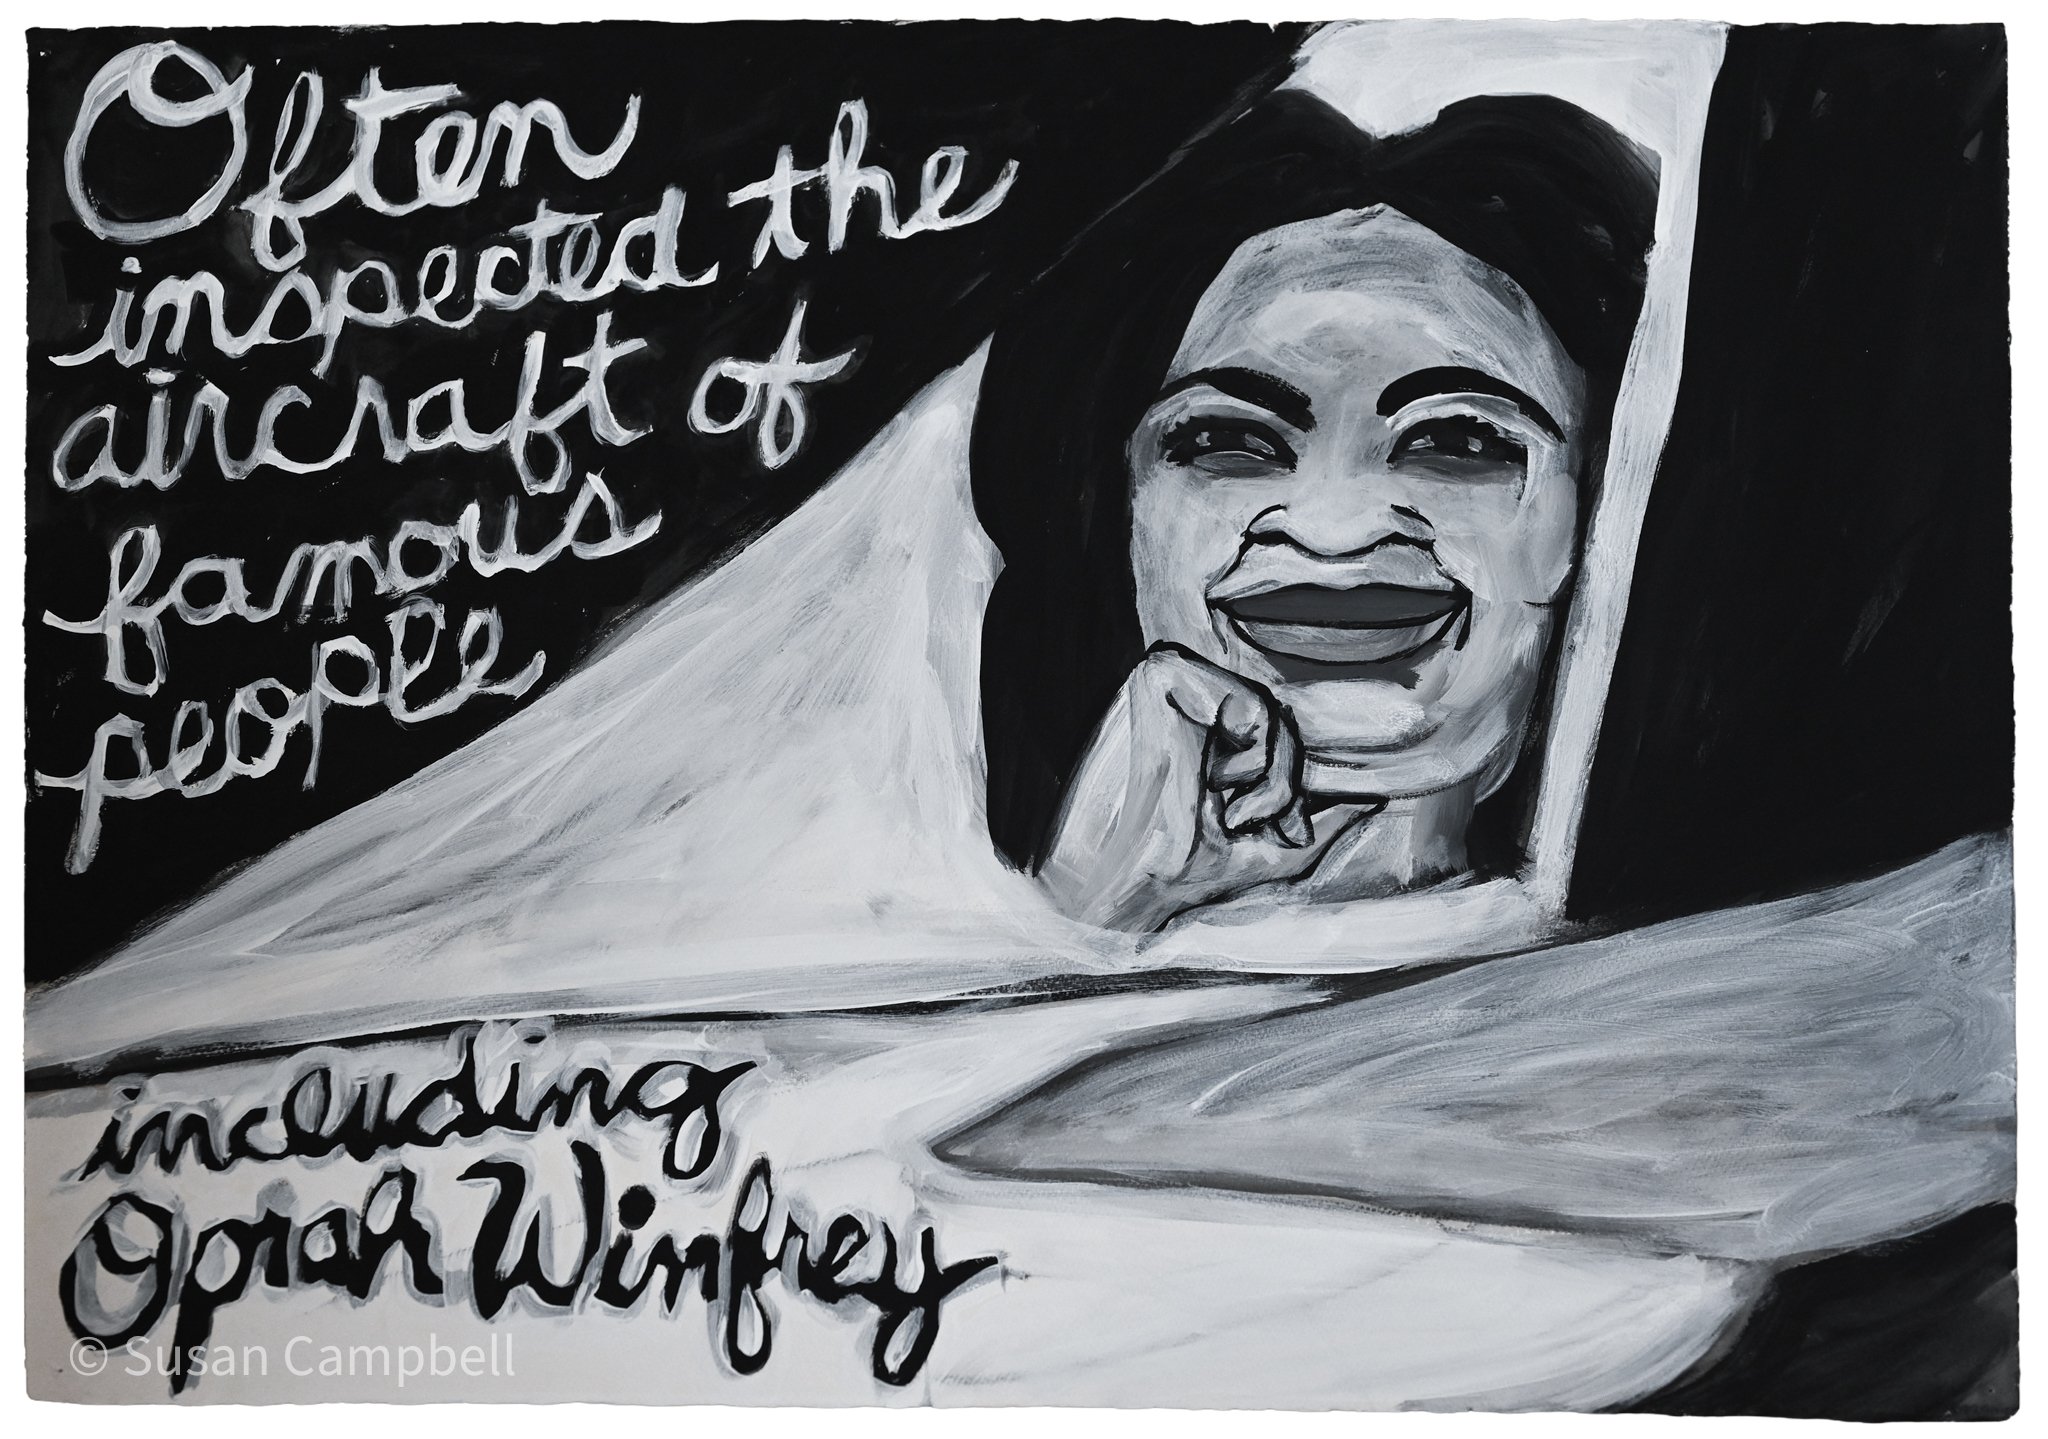 Often
inspected the
aircraft of
famous
people
including
Oprah Winfrey
© Susan Campbell